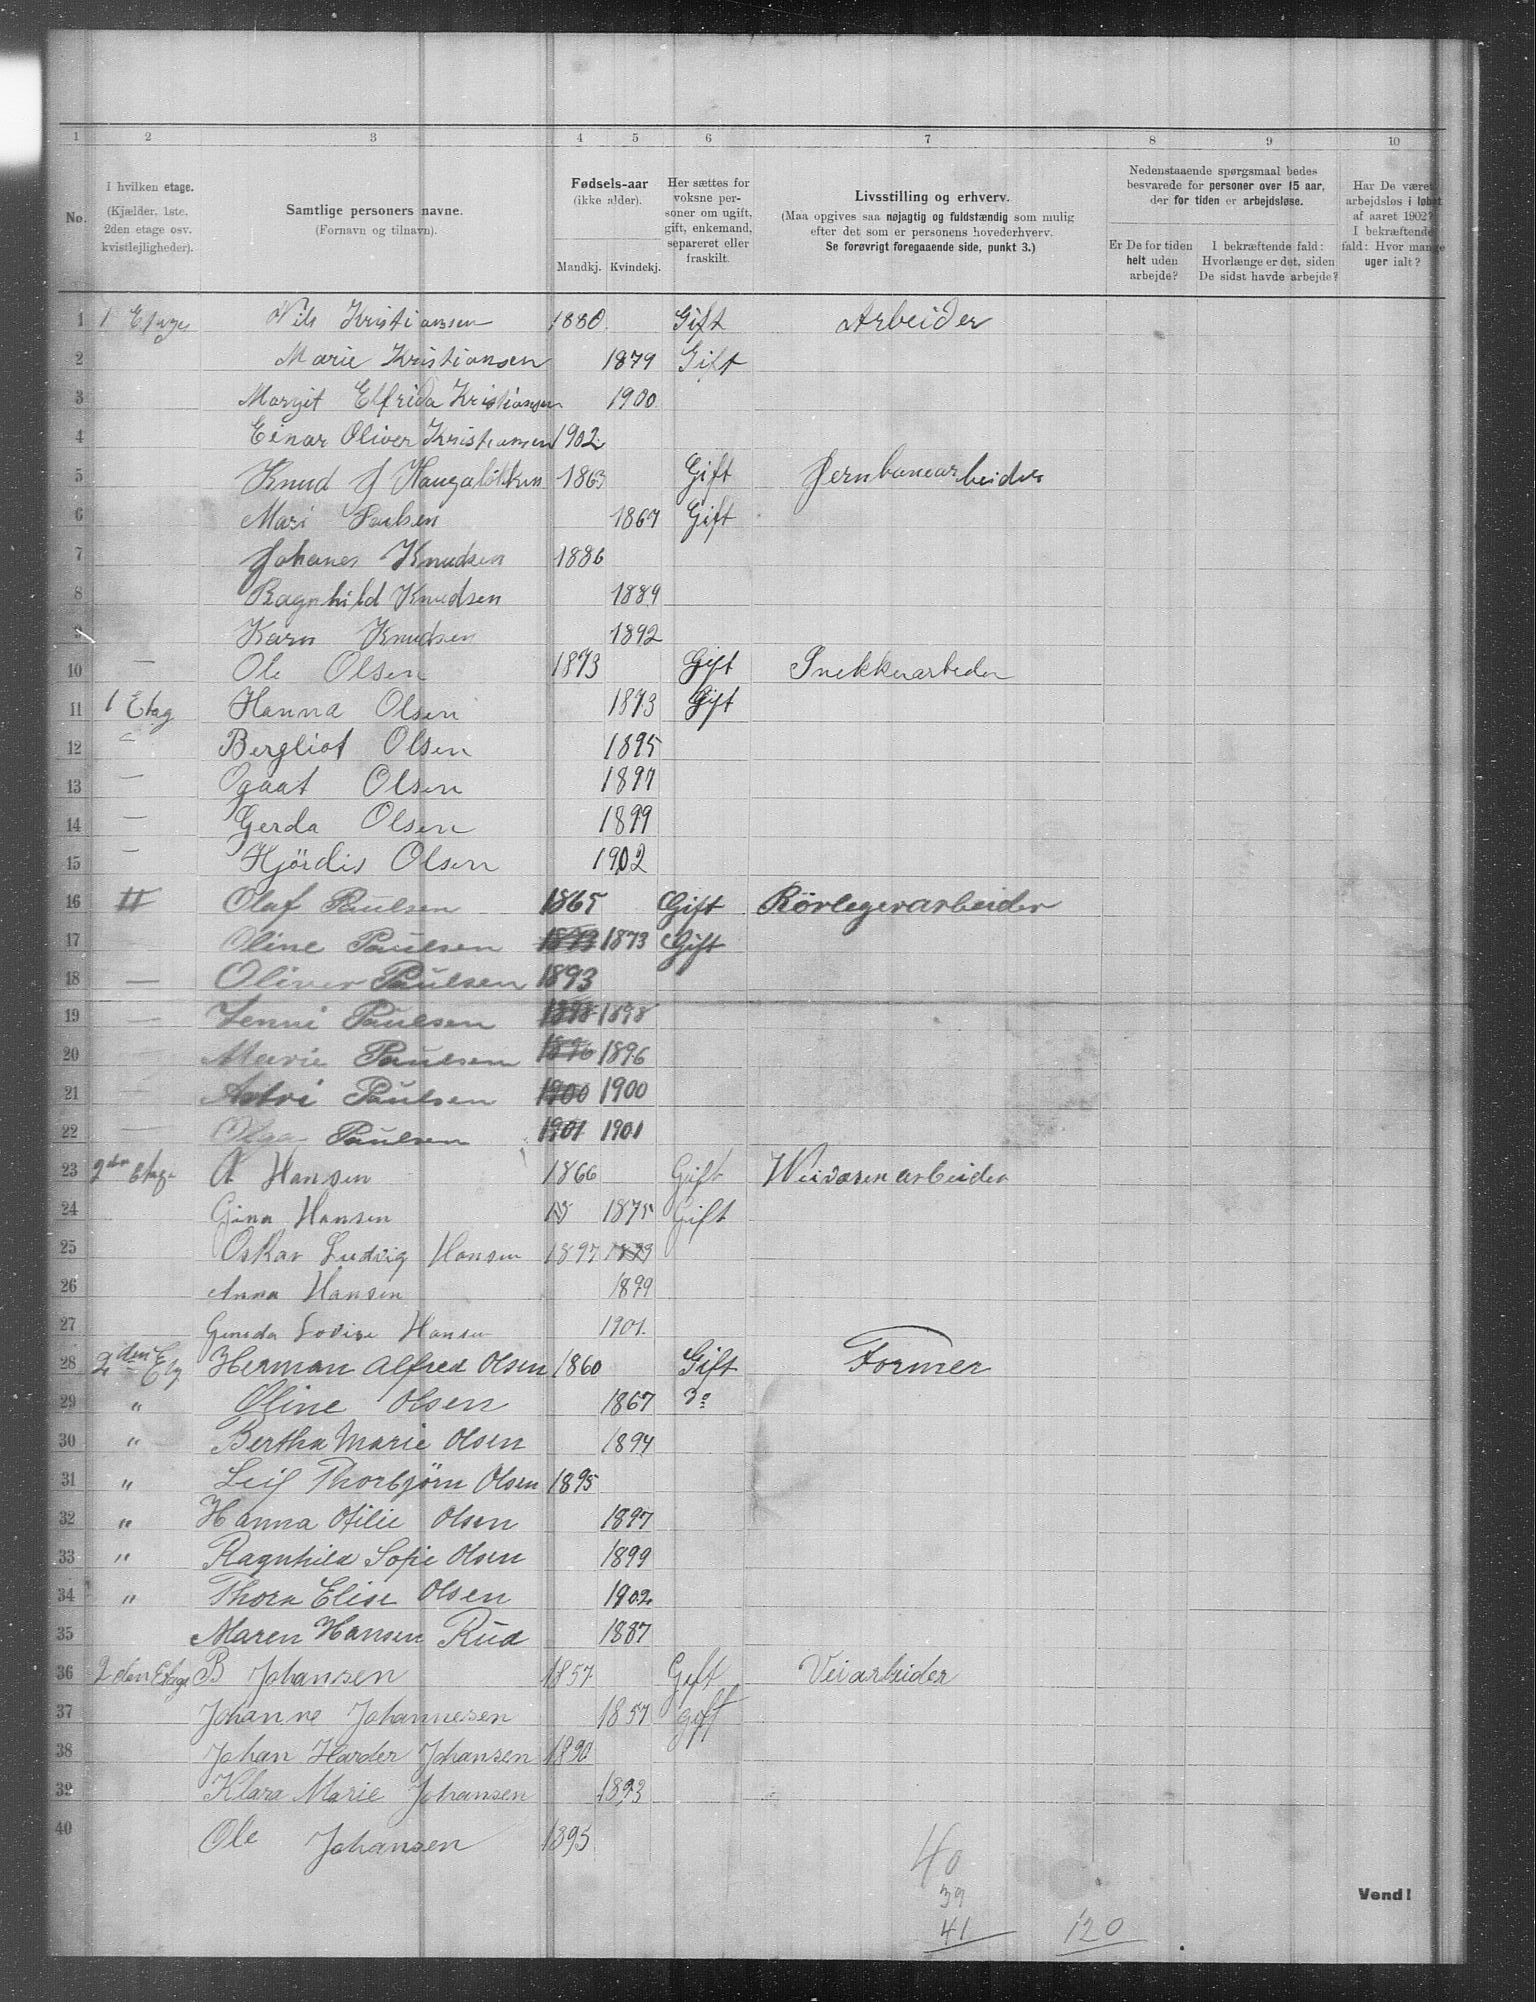 1 2 3 4 5 6 7 8 9 10
No.
I hvilken etage.
(Kjælder, 1ste.
2den etage osv.
kvistlejligheder).
Samtlige personers navne.
(Fornavn og tilnavn).
Fødsels-aar
(ikke alder).
Mandkj. Kvindekj.
Her sættes for
voksne per-
soner om ugift,
gift, enkemand,
separeret eller
fraskilt.
Livsstilling og erhverv.
(Maa opgives saa nøjagtig og fuldstændig som mulig
efter det som er personens hovederhverv.
Se forøvrigt foregaaende side, punkt 3.)
Nedenstaaende spørgsmaal bedes
besvarede for personer over 15 aar,
der for tiden er arbejdsløse.
Er De for tiden
helt uden
arbejde?
I bekræftende fald:
Hvorlænge er det, siden
De sidst havde arbejde?
Har De været
arbejdsløs i løbet
af aaret 1902?
I bekræftende
fald: Hvor mange
uger ialt?
1 1 Etage Nils Kristiansen 1880 Gift Arbeider
2 Marie Kristiansen 1879 Gift
3 Margit Elfrida Kristiansen 1900
4 Einar Oliver Kristiansen 1902
5 Knud J Haugaløkken 1863 Gift Jernbanearbeider
6 Mari Paulsen 1867 Gift
7 Johanes Knudsen 1886
8 Ragnhild Knudsen 1889
9 Karn Knudsen 1892
10 — Ole Olsen 1873 Gift Snekkerarbeder
11 1 Etag Hanna Olsen 1873 Gift
12 Bergliot Olsen 1895
13 — Ogaat Olsen 1897
14 — Gerda Olsen 1899
15 — Hjördis Olsen 1902
16 Olaf Paulsen 1865 Gift Rörlegerarbeider
17 Oline Paulsen 1873 1873 Gift
18 — Oliver Paulsen 1893
19 — Jenni Paulsen 1898 1898
20 — Marie Paulsen 1896 1896
21 — Astri Paulsen 1900 1900
22 — Olga Paulsen 1901 1901
23 2den Etage A Hansen 1866 Gift Veivæsenarbeider
24 Gina Hansen 18 1875 Gift
25 Oskar Ludvig Hansen 1897 1899
26 Anna Hansen 1899
27 Lovise Hansen 1901
28 2den Etg Herman Alfred Olsen 1860 Gift Former
29 " Oline Olsen 1867 Do
30 " Bertha Marie Olsen 1894
31 " Leif Thorbjørn Olsen 1895
32 " Hanna Otilie Olsen 1897
33 " Ragnhild Sofie Olsen 1899
34 " Thora Elise Olsen 1902
35 Maren Hansen Rud 1887
36 2den Etage B Johansen 1857 Gift Veiarbeider
37 Johanne Johannesen 1857 gift
38 Johan Harder Johansen 1890
39 Klara Marie Johansen 1893
40 Ole Johansen 1895
40
39
41 120
Vend!